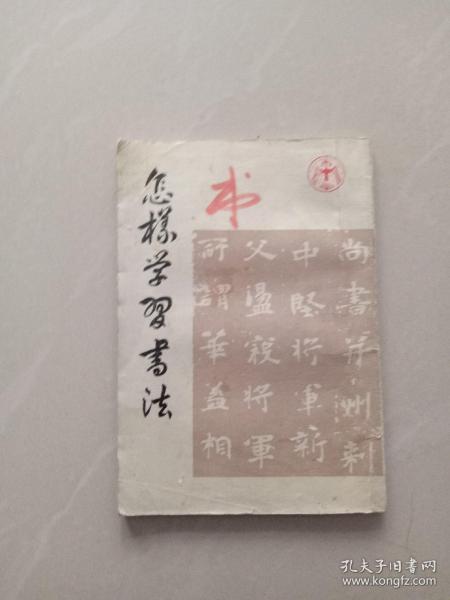 怎样学習書法
书
尚書并州刺
中堅将軍新
父邊寇将軍
所謂華蓋相
孔夫子旧书网
www.kongfz.com